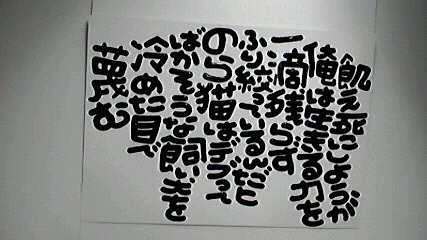 飢え死にしようが
俺は生きる力を
一滴残らず
ふり絞っているんだと
のら猫はデブで
ばかそうな飼い犬を
冷めた目で
蔑む